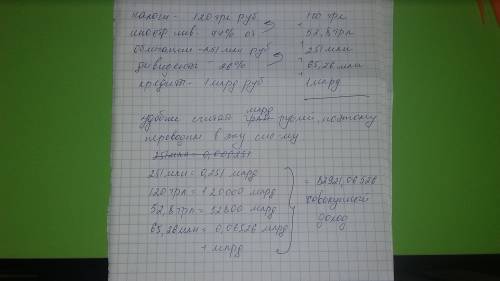 налоги - 120 трл руб
иностр. инв. 44% от
облигации - 251 млн руб
дивиденды 26%
кредит - 1 млрд руб
120 трл
52,8 трл
251 млн
65,26 млн
1 млрд
удобнее считать млрд рублей, поэтому
переводим в эту систему
251 млн = 0,000251
251 млн = 0,251 млрд
120 трл = 120000 млрд
52,8 трл = 52800 млрд
65,26 млн = 0,06526 млрд
1 млрд
совокупный
доход